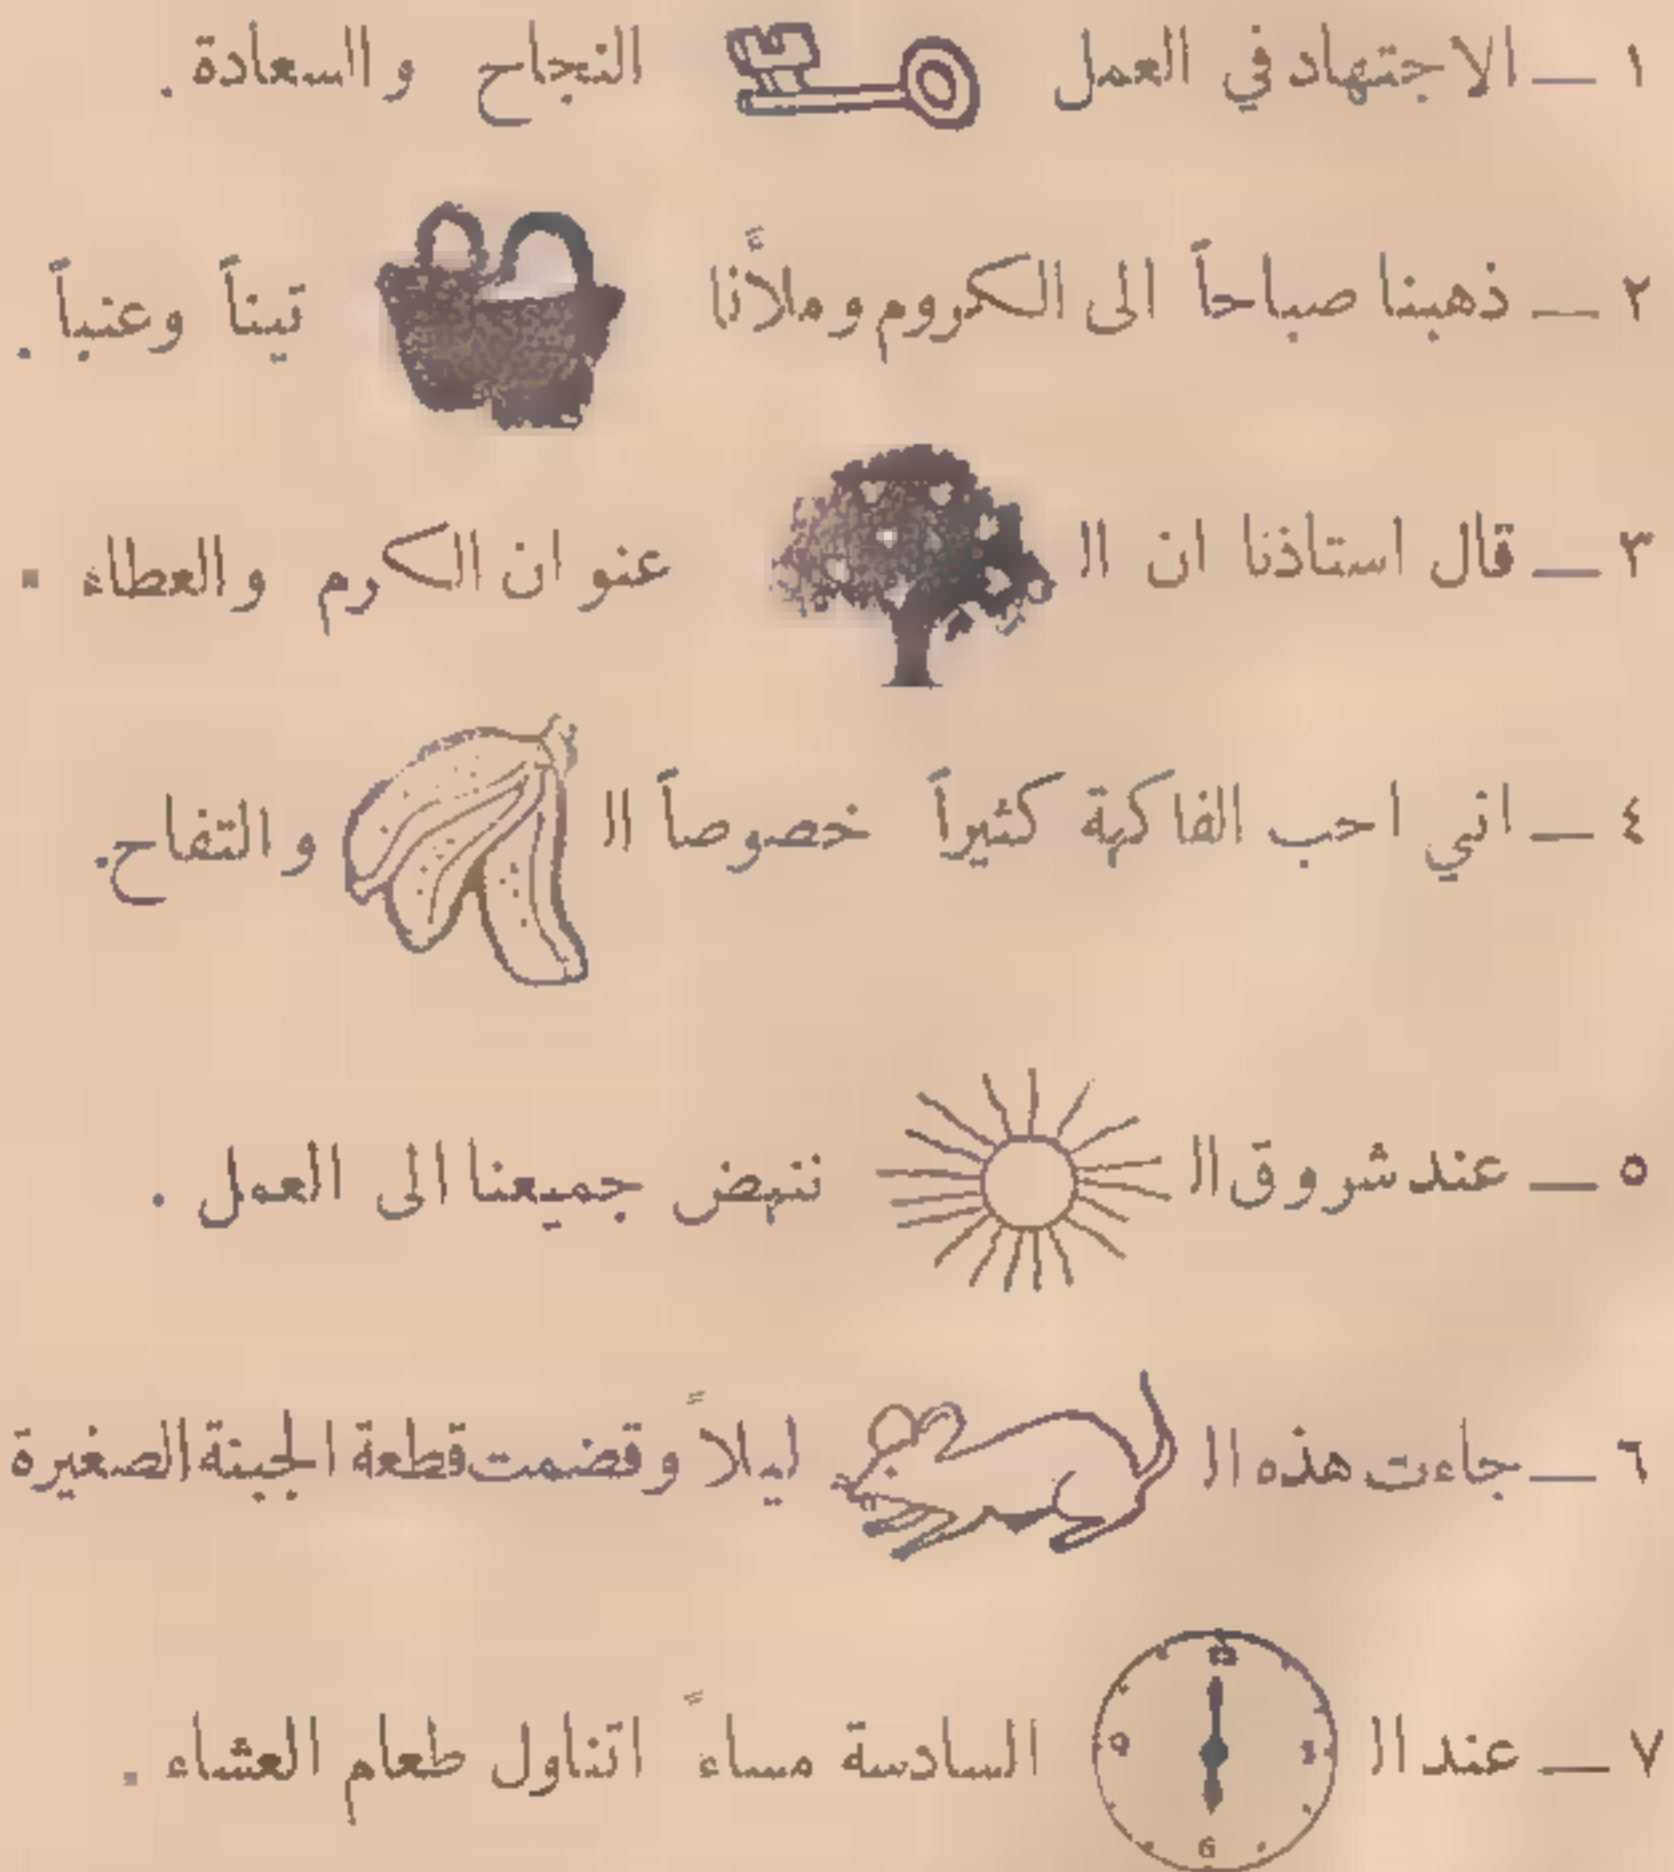 ١ — الاجتهاد في العمل النجاح والسعادة .
٢ — ذهبنا صباحاً الى الكروم وملأنا تيناً وعنباً .
٣ — قال استاذنا ان الـ عنوان الكرم والعطاء .
٤ — اني احب الفاكهة كثيراً خصوصاً الـ والتفاح.
٥ — عند شروق الـ ننهض جميعنا الى العمل .
٦ — جاءت هذه الـ ليلاً وقضمت قطعة الجبنة الصغيرة
12
٧ — عند الـ 9 3 السادسة مساءً اتناول طعام العشاء .
6